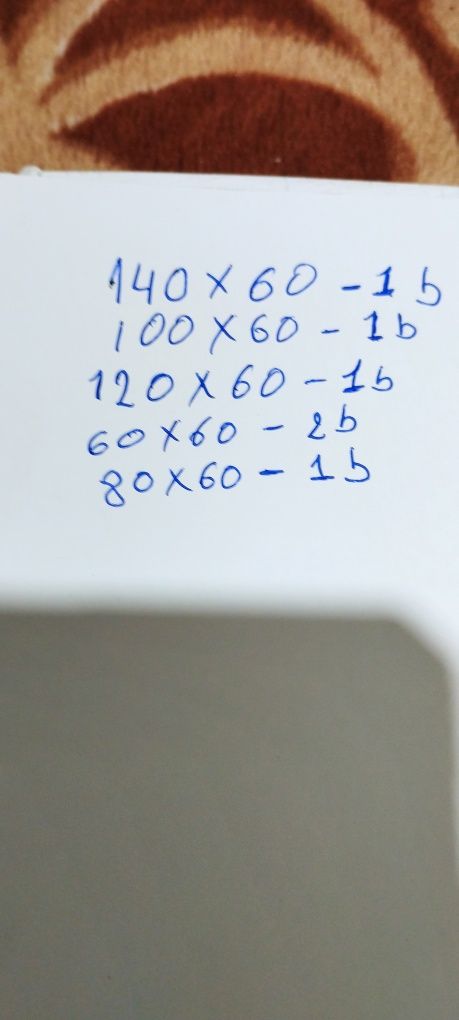 140 x 60 - 1 b
100 x 60 - 1 b
120 x 60 - 1b
60 x 60 - 2b
80 x 60 - 1 b